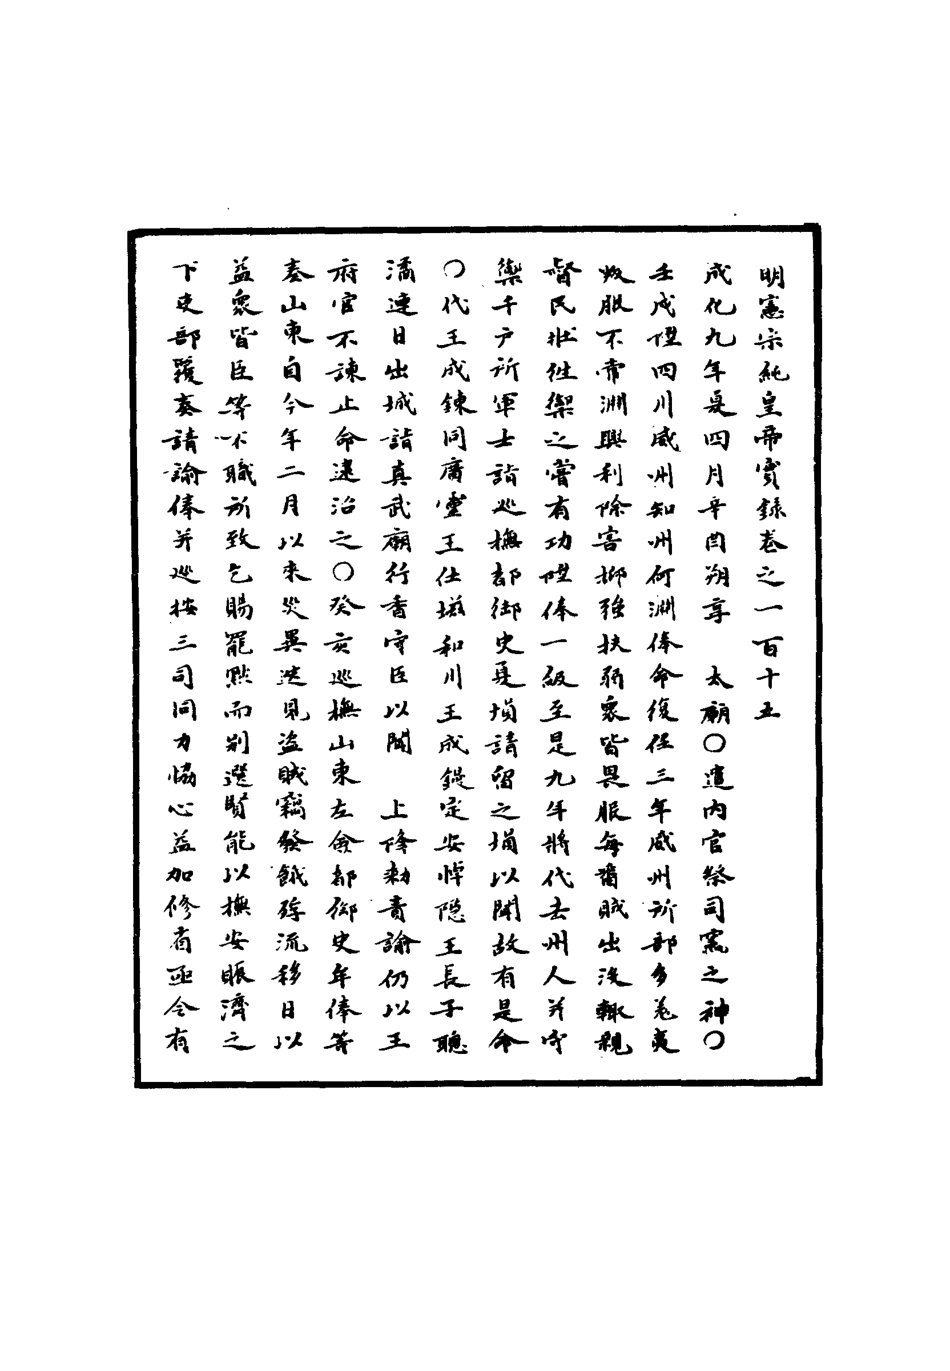 明憲宗純皇帝實錄卷之一百十五
成化九年夏四月辛酉朔享　太廟○遣內官祭司竈之神○
壬戌陞四川威州知州何淵俸命復任三年威州所部多羌夷
叛服不常淵興利除害抑強扶弱衆皆畏服每番賊出沒輒親
督民壯徃禦之嘗有功陞俸一級至是九年將代去州人并守
禦千戶所軍士詣巡撫都御史夏塤請留之塤以聞故有是命
○代王成鍊同廣靈王仕𡏖和川王成鍉定安悼隱王長子聰
潏連日出城詣真武廟行香守臣以聞　上降勑責諭仍以王
府官不諫止命逮治之○癸亥巡撫山東左僉都御史牟俸等
奏山東自今年二月以來災異迭見盜賊竊發餓殍流移日以
益衆皆臣等不職所致乞賜罷黜而別選賢能以撫安賑濟之
下吏部覆奏請諭俸并巡按三司同力恊心益加修省亟令有